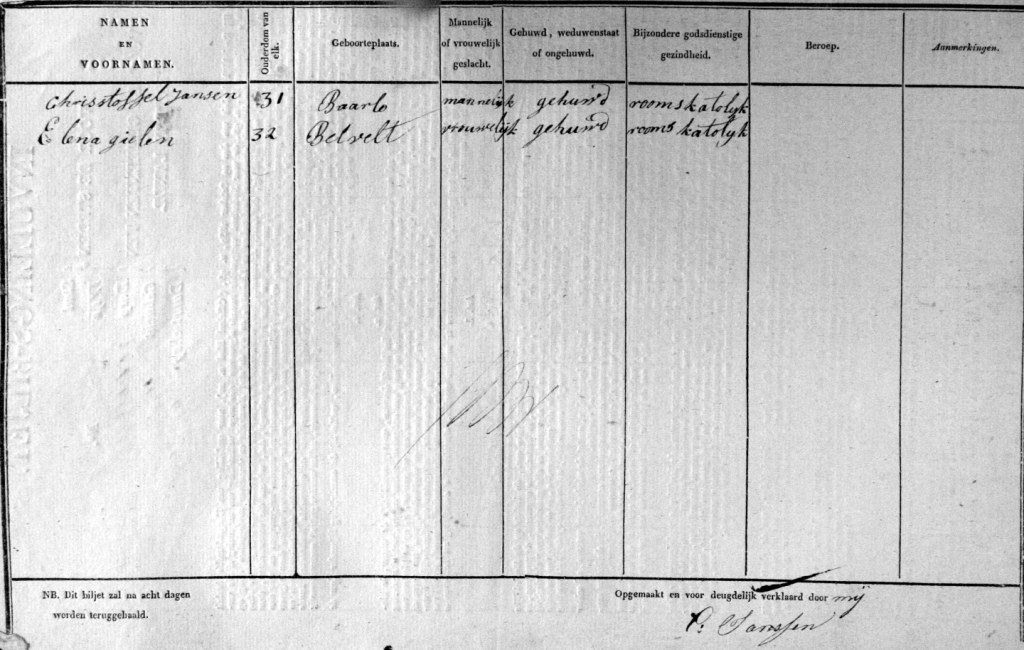 NAMEN EN VOORNAMEN.
Ouderdom van elk.
Geboorteplaats.
Mannelijk of vrouwelijk geslacht.
Gehuwd, weduwenstaat of ongehuwd.
Bijzondere godsdienstige gezindheid.
Beroep.
Aanmerkingen.
Chrisstoffel Jansen 31 Baarlo mannelijk gehuwd rooms katolyk
Elena gielen 32 Belvelt vrouwelijk gehuwd rooms katolyk
NB. Dit biljet zal na acht dagen
worden teruggehaald.
Opgemaakt en voor deugdelijk verklaard door mij
C: Janssen